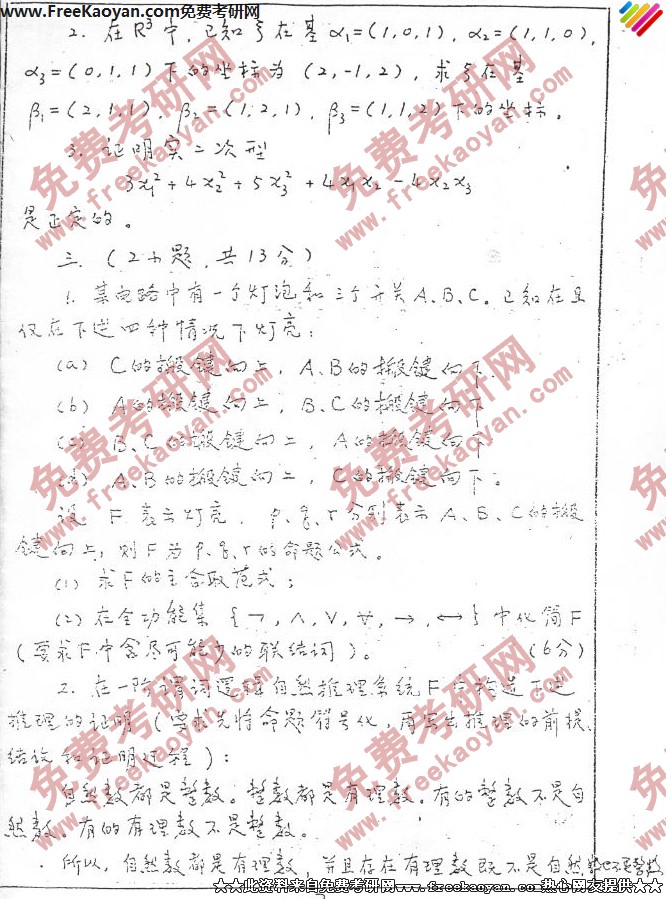 www.FreeKaoyan.com免费考研网
2. 在R³中, 已知ξ在基α₁=(1,0,1), α₂=(1,1,0),
α₃=(0,1,1)下的坐标为(2,-1,2), 求ξ在基
β₁=(2,1,1), β₂=(1,2,1), β₃=(1,1,2)下的坐标。
3. 证明实二次型
3x₁²+4x₂²+5x₃²+4x₁x₂-4x₂x₃
是正定的。
三、(2小题, 共13分)
1. 某电路中有一个灯泡和三个开关A、B、C。已知在且
仅在下述四种情况下灯亮:
(a) C的搬键向上, A、B的搬键向下
(b) A的搬键向上, B、C的搬键向下
(c) B、C的搬键向上, A的搬键向下
(d) A、B的搬键向上, C的搬键向下。
设 F 表示灯亮, p、q、r分别表示A、B、C的搬
键向上, 则F为p、q、r的命题公式。
(1) 求F的主合取范式;
(2) 在全功能集{¬, ∧, ∨, →, ↔}中化简F
(要求F中含尽可能少的联结词)。 (6分)
2. 在一阶谓词逻辑自然推理系统F中构造下述
推理的证明(要求先将命题符号化, 再写出推理的前提、
结论和证明过程):
自然数都是整数。整数都是有理数。有的整数不是自
然数。有的有理数不是整数。
所以, 自然数都是有理数, 并且存在有理数既不是自然数也不是整数
★★此资料来自免费考研网www.freekaoyan.com热心网友提供★★
免费考研网
www.freekaoyan.com
免费考研网
www.freekaoyan.com
免费考研网
www.freekaoyan.com
免费考研网
www.freekaoyan.com
免费考研网
www.freekaoyan.com
免费考研网
www.freekaoyan.com